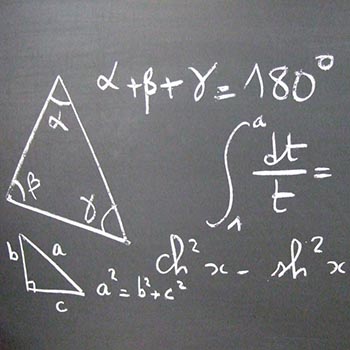 α+β+γ=180°
α
β
γ
∫₁ᵃ dt/t =
b a
c
a²=b²+c²
ch²x - sh²x